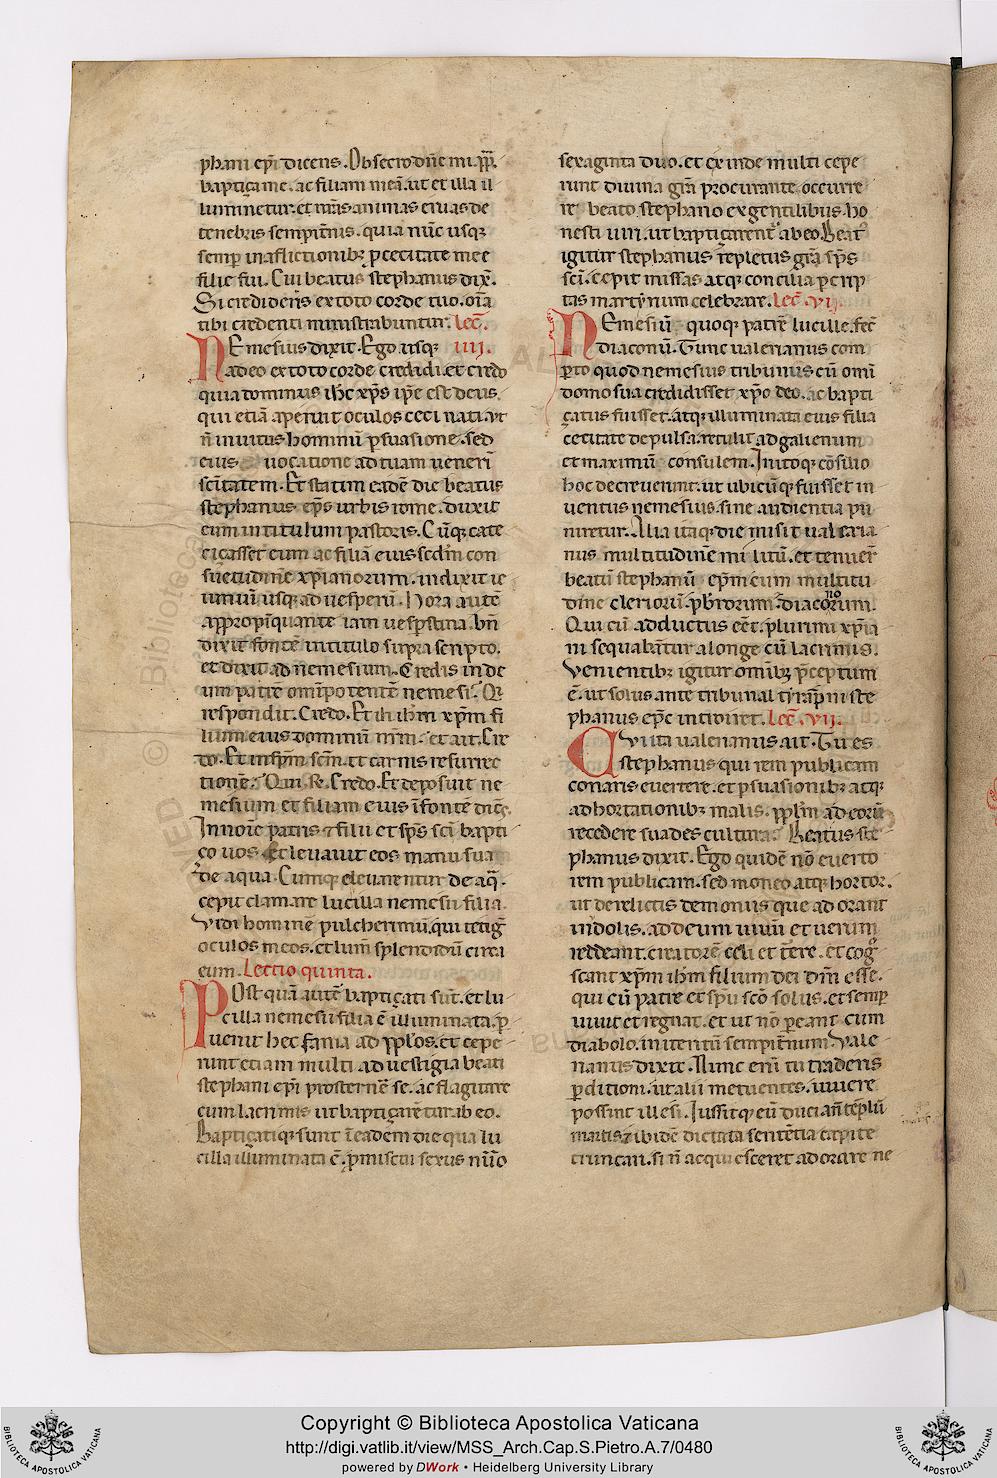 phani ep̄i dicens. Obsecro dn̄e mi ꝓp̄r.
baptiça me. ac filiam meā. ut et illa il
luminetur. et nr̄as animas eruas de
tenebris sempit̄nis. quia nūc usqꝫ
semꝑ in aflictionibꝫ ꝓ cecitate mee
filie fui. Cui beatus stephanus dix̄.
Si credider̄is ex toto corde tuo. om̄a
tibi credenti ministrabuntur. lec̄.
NEmesius dixit. Ego usqꝫ iiii.
adeo ex toto corde credidi. et credo
quia dominus ih̄c xp̄s ip̄e est deus.
qui etiā aperuit oculos ceci nati. ut
n̄ invitus hominū ꝑsuasione. sed
eius vocatione ad tuam venerī
scītatem. Et statim eadē die beatus
stephanus ep̄s urbis rome. duxit
eum in titulum pastoris. Cūqꝫ cate
ciçasset eum ac filiā eius scd̄m con
suetudinē xp̄ianorum. indixit ie
iuniū usqꝫ ad vesperū. Hora autē
appropīquante iam vesꝑtina. bn̄
dixit fontē in titulo supra scripto.
et dixit ad nemesium. Credis in de
um patrē omīpotentē nemesi? Qi
respondit. Credo. Et in ih̄m xp̄m fi
lium eius dominū nr̄m? et ait. Cre
do. Et in sp̄m scm̄. et carnis resurrec
tionē? Qui R̄. Credo. Et deposuit ne
mesium et filiam eius ī fontē dicēs.
In noīe patris ⁊ filii et sp̄s scī bapti
ço vos. Et levavit eos manu sua
de aqua. Cumqꝫ elevarentur de aq̄.
cepit clamare lucilla nemesii filia.
Vidi hominē pulcherimū. qui tetiḡ
oculos meos. et lum̄ splendidū circa
eum. Lectio quinta.
POst quā autē baptiçati sūt. et lu
cilla nemesii filia ē illuminata. ꝑ
venit hec fama ad ꝓp̄los. et cepe
runt etiam multi ad vestigia beati
stephani ep̄i prosternē se. ac flagitare
cum lacrimis ut baptiçarētur ib eo.
Baptiçatiqꝫ sunt ī eadem die qua lu
cilla illuminata ē. ꝓmiscui sexus nūo
sexaginta duo. et ex inde multi cepe
runt divina gr̄a procurante. occurre
re beato stephano ex gentilibus. ho
nesti viri. ut baptiçarent ab eo. Beat
igitur stephanus repletus gr̄a sp̄s
scī. cepit missas atqꝫ concilia ꝑ crip
tas martyrum celebrare. Lec̄. vi.
NEmesiū quoqꝫ patrē lucille. fec̄
diaconū. Tunc valerianus com
ꝑto quod nemesius tribunus cū omī
domo sua credidisset xp̄o deo. ac bapti
çatus fuisset. atqꝫ illuminata eius filia
cecitate depulsa. retulit ad galienum
et maximū consulem. Initoqꝫ cōsilio
hoc decreverunt. ut ubicūqꝫ fuisset in
ventus nemesius. sine audientia pu
niretur. Alia itaqꝫ die misit valeria
nus multitudinē militū. et tenuer̄
beatū stephanū ep̄m cum multitu
dine clericorū. p̄bīorum. diaconorum.
Qui cū adductus eēt. plurimi xp̄ia
ni sequabātur a longe cū lacrimis.
Venientibꝫ igitur omībꝫ p̄ceptum
ē. ut solus ante tribunal tyrāpni ste
phanus ep̄c introiret. Lec̄. vii.
CVi ita valerianus ait. Tu es
stephanus qui rem publicam
conaris evertere. et ꝑsuasionibꝫ atqꝫ
adhortationibꝫ malis. ꝓp̄lm̄ a deorū
recedere suades cultura? Beatus ste
phanus dixit. Ego quidē nō everto
rem publicam. sed moneo atqꝫ hortor.
ut derelictis demoniis que adorant
in idolis. ad deum vivū et verum
reddeant. creatorē celi et tēre. et coḡ
scant xp̄m ih̄m filium dei dn̄i esse.
qui cū patre et sp̄u scō solus. et semꝑ
vivit et regnat. et ut nō pereant cum
diabolo. in iteritū sempit̄num. Vale
rianus dixit. Nunc enī tu traderis
ꝑditioni. ut alii metuentes. vivere
possint illesi. Iussitqꝫ eū duci ad tēplū
martis. ⁊ ibidē dictata sentētia capite
truncari. si n̄ acquiesceret adorare ne
Copyright © Biblioteca Apostolica Vaticana
http://digi.vatlib.it/view/MSS_Arch.Cap.S.Pietro.A.7/0480
powered by DWork • Heidelberg University Library
BIBLIOTECA APOSTOLICA VATICANA
BIBLIOTECA APOSTOLICA VATICANA